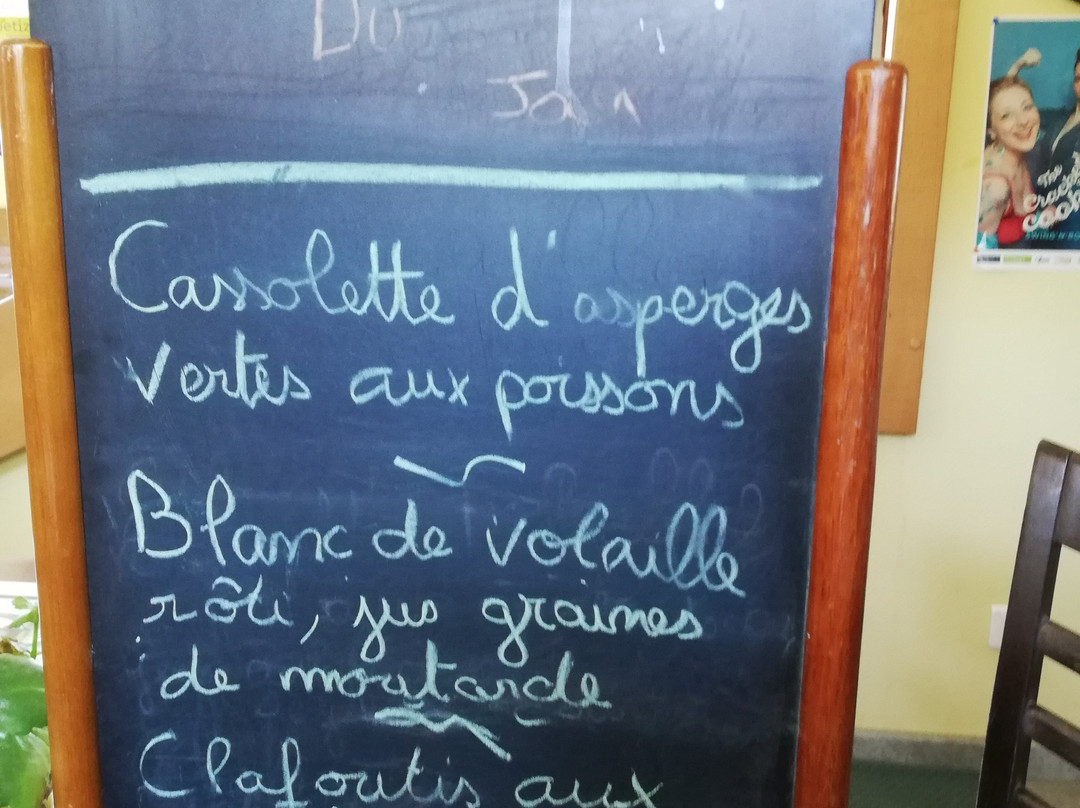 Du
Cassolette d'asperges
vertes aux poissons
Blanc de volaille
rôti, jus graines
de moutarde
Clafoutis aux
The